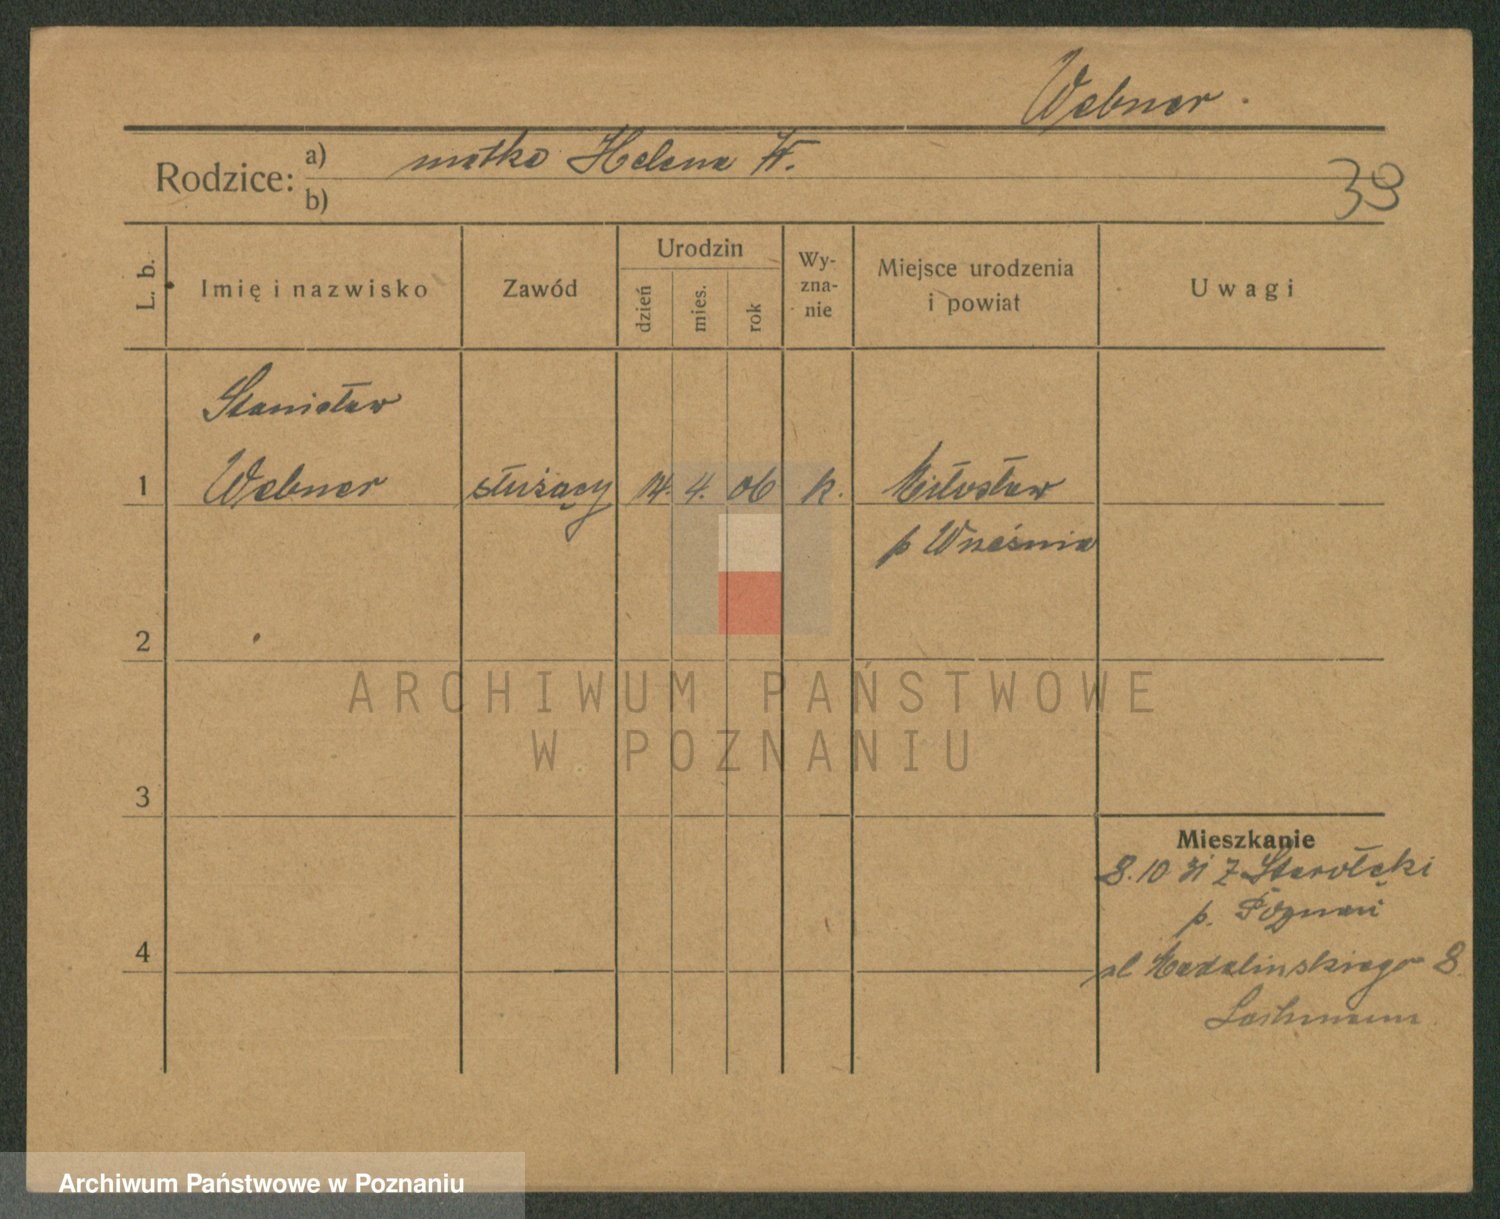 Webner.
Rodzice: a) matka Helena W.
39
b)
L. b. Imię i nazwisko Zawód Urodzin dzień mies. rok Wy-zna-nie Miejsce urodzenia i powiat Uwagi
Stanisław
1 Webner służący 14. 4. 06 k. Miłosław
p Września
2
ARCHIWUM PAŃSTWOWE
W POZNANIU
3
Mieszkanie
8.10 31 z Starołęki
p. Poznań
4
ul Madalinskiego 8.
Archiwum Państwowe w Poznaniu